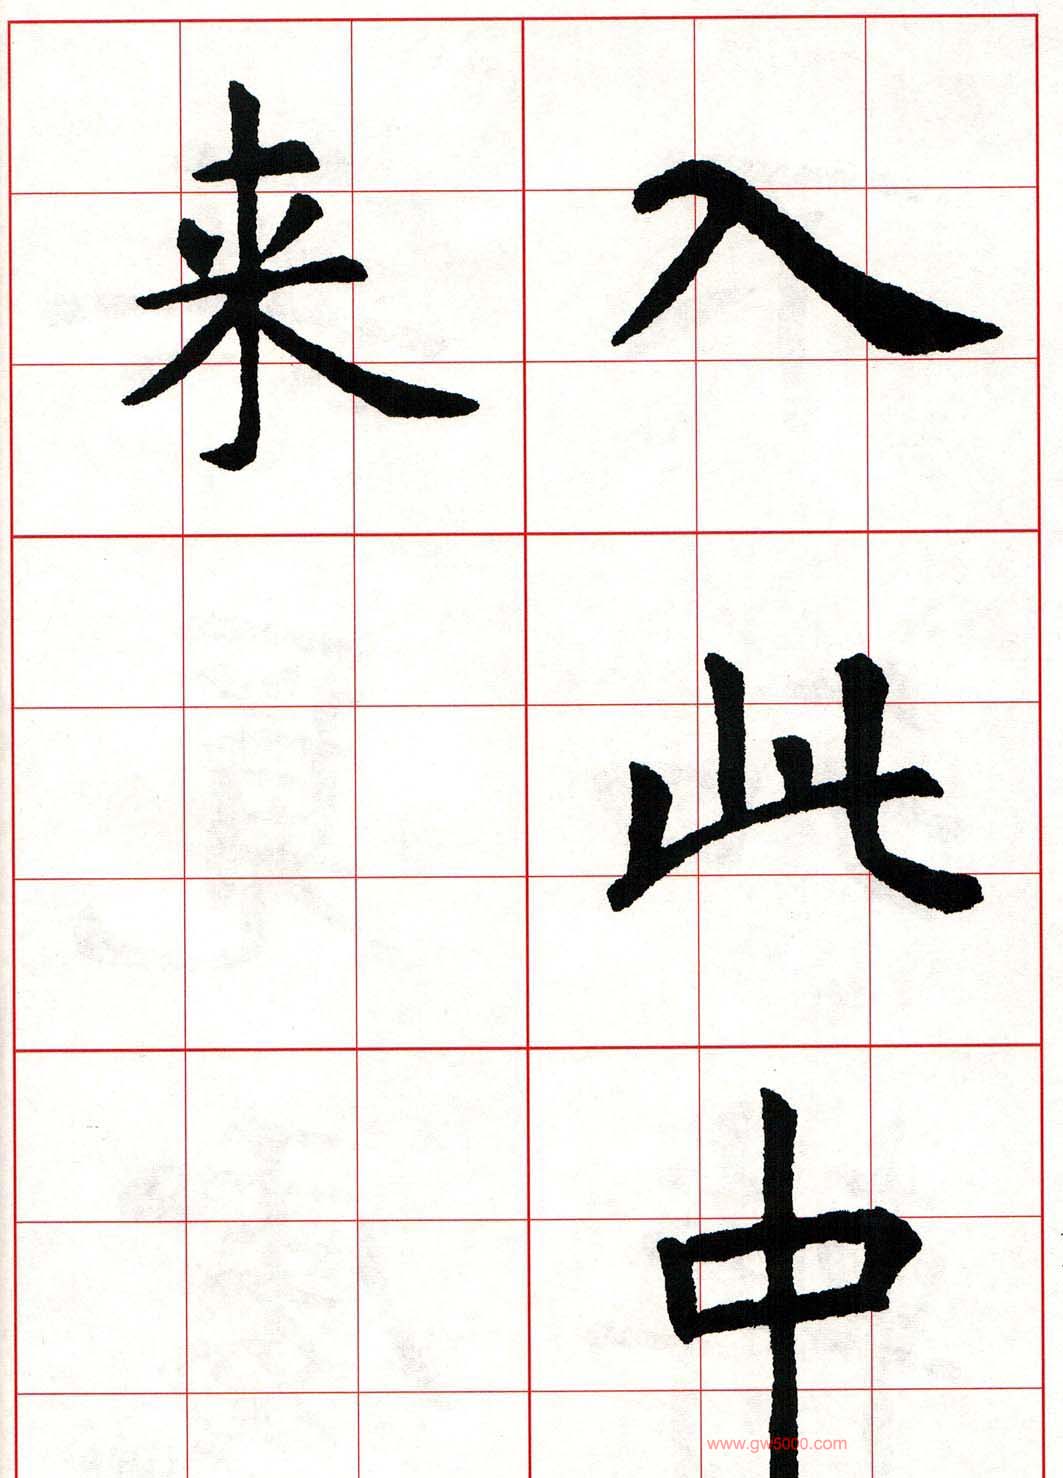 入此中
来
www.gw5000.com